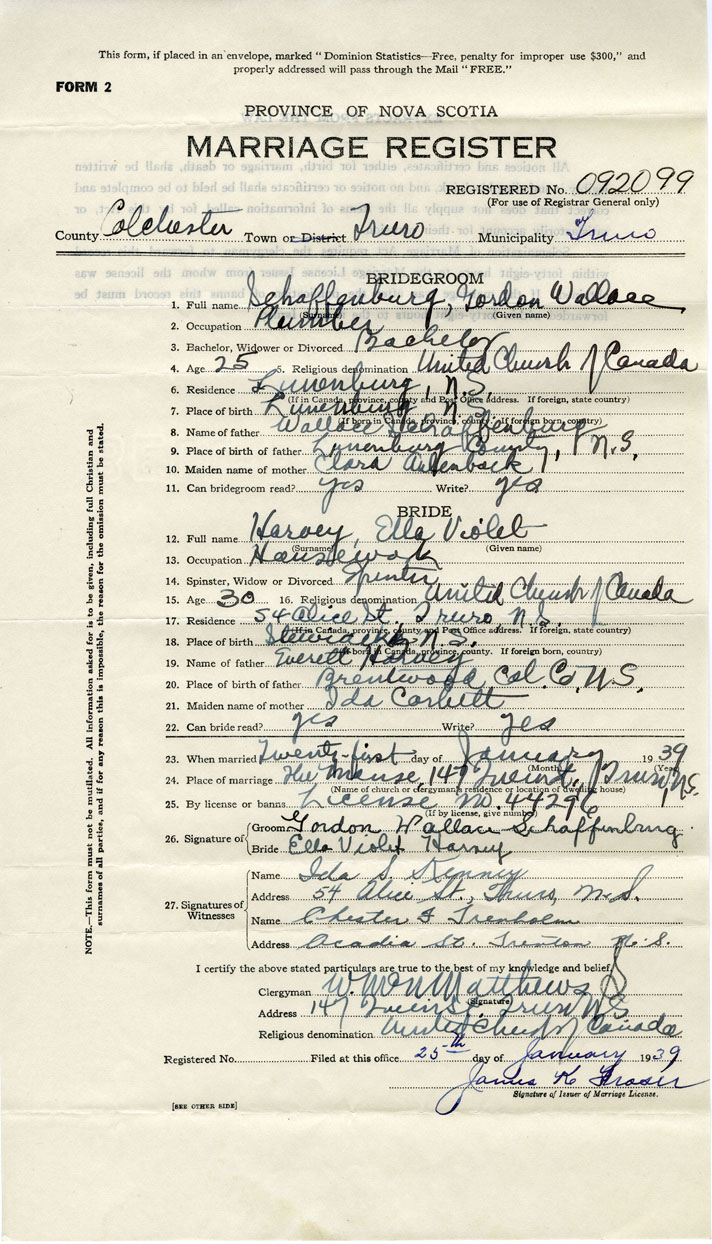 This form, if placed in an envelope, marked "Dominion Statistics—Free, penalty for improper use $300," and
properly addressed will pass through the Mail "FREE."
FORM 2
PROVINCE OF NOVA SCOTIA
MARRIAGE REGISTER
REGISTERED No. 092099
(For use of Registrar General only)
County Colchester Town or District Truro Municipality Truro
BRIDEGROOM
1. Full name Schaffenburg, Gordon Wallace
(Surname) (Given name)
2. Occupation Plumber
3. Bachelor, Widower or Divorced Bachelor
4. Age 25 5. Religious denomination United Church of Canada
6. Residence Lunenburg, N.S.
(If in Canada, province, county and Post Office address. If foreign, state country)
7. Place of birth Lunenburg N.S.
(If born in Canada, province, county. If foreign born, country)
8. Name of father Wallace Schaffenburg
9. Place of birth of father Lunenburg County, N.S.
10. Maiden name of mother Clara
11. Can bridegroom read? yes Write? yes
BRIDE
12. Full name Harvey, Ella Violet
(Surname) (Given name)
13. Occupation Housework
14. Spinster, Widow or Divorced Spinster
15. Age 30 16. Religious denomination United Church of Canada
17. Residence 54 Alice St., Truro, N.S.
(If in Canada, province, county and Post Office address. If foreign, state country)
18. Place of birth Stewiacke N.S.
(If born in Canada, province, county. If foreign born, country)
19. Name of father Everett Harvey
20. Place of birth of father Brentwood Col. Co, N.S.
21. Maiden name of mother Ida Corbett
22. Can bride read? yes Write? yes
23. When married Twenty-first day of January 1939
(Month) (Year)
24. Place of marriage The Manse, 147 Queen St, Truro N.S.
(Name of church or clergyman's residence or location of dwelling house)
25. By license or banns License No. 44296
(If by license, give number)
26. Signature of Groom Gordon Wallace Schaffenburg
Bride Ella Violet Harvey
27. Signatures of Witnesses Name Ida S. Kenney
Address 54 Alice St., Truro, N.S.
Name Chester Trenholm
Address Acadia St. Trenton N.S.
I certify the above stated particulars are true to the best of my knowledge and belief.
Clergyman Matthews
(Signature)
Address 147 Queen St. Truro N.S.
Religious denomination United Church of Canada
Registered No. Filed at this office 25th day of January 1939
James K Fraser
Signature of Issuer of Marriage License.
[SEE OTHER SIDE]
NOTE.—This form must not be mutilated. All information asked for is to be given, including full Christian and
surnames of all parties, and if for any reason this is impossible, the reason for the omission must be stated.